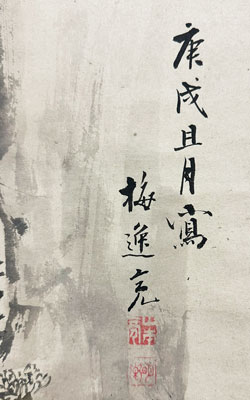 庚戌且月寫
梅逸亮